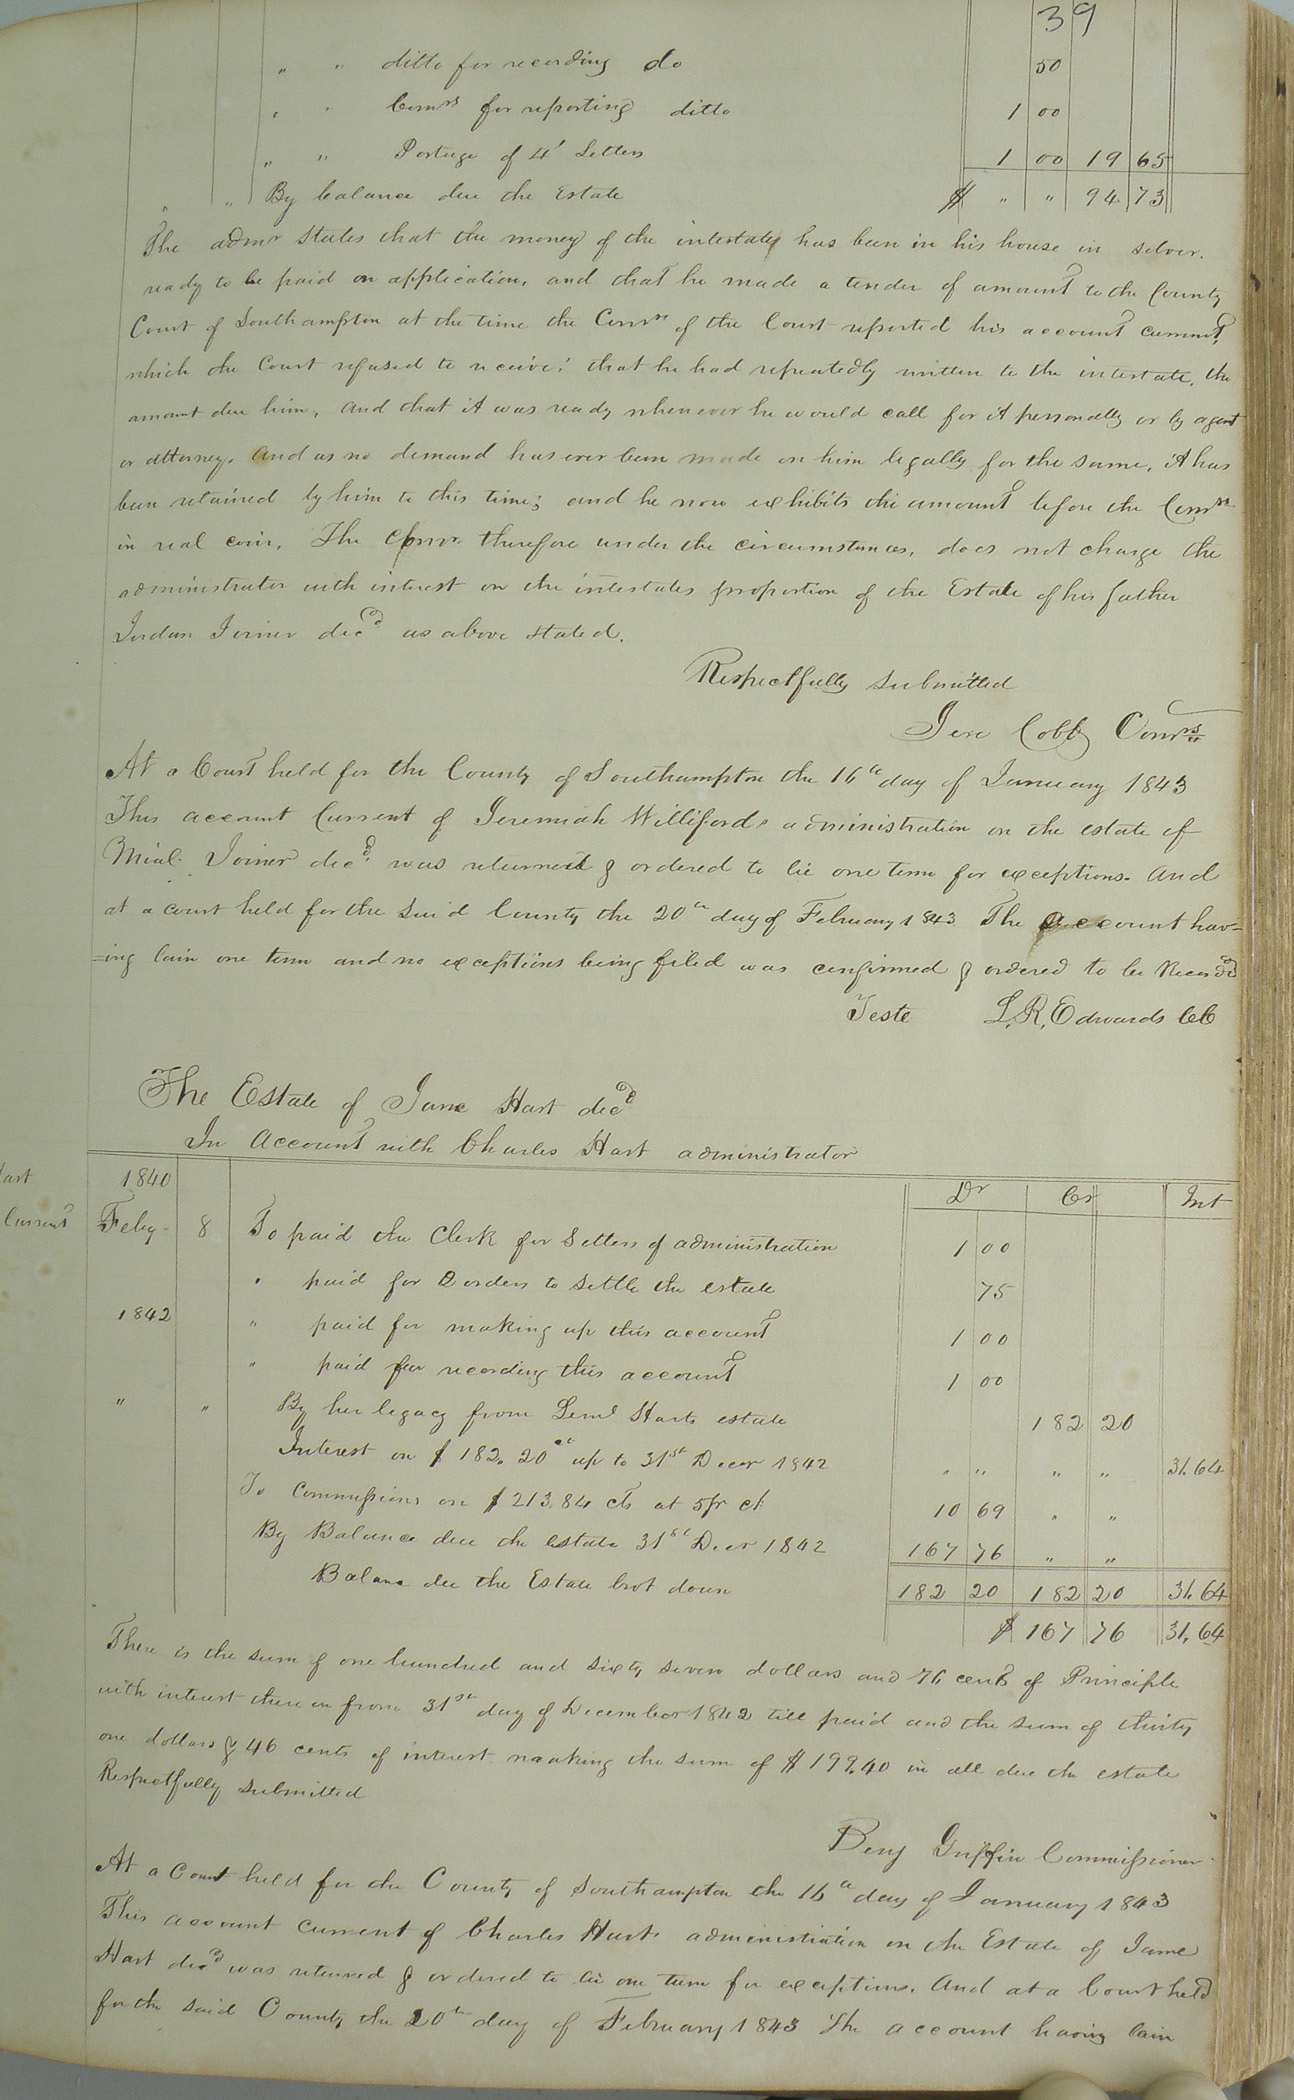 39
" " ditto for recording do 50
" " Comrs for reporting ditto 1 00
" " Postage of 4 Letters 1 00 19 65
" " By balance due the Estate $ " " 94 73
The admr States that the money of the intestate has been in his house in silver.
ready to be paid on application, and that he made a tender of amount to the County
Court of Southampton at the time the Comrs of the Court reported his account current,
which the Court refused to receive; that he had repeatedly written to the intestate, the
amount due him, and that it was ready whenever he would call for it personally or by agent
or attorney. And as no demand has ever been made on him legally for the same, it has
been retained by him to this time; and he now exhibits the amount before the Comrs
in real coin. The Comr therefore under the circumstances, does not charge the
administrator with interest on the intestates proportion of the Estate of his father
Jordan Joiner decd as above stated.
Respectfully submitted
Jere Cobb Comrs
At a Court held for the County of Southampton the 16th day of January 1843
This account Current of Jeremiah Willifords administration on the estate of
Mial Joiner decd was returned & ordered to lie one term for exceptions. And
at a court held for the said County the 20th day of February 1843 The account hav=
=ing lain one term and no exceptions being filed was confirmed & ordered to be Recorded
Teste L. R. Edwards CC
The Estate of Jane Hart decd
In Account with Charles Hart administrator
art
Current
1840 Dr Cr Int
Feby 8 To paid the Clerk for Letters of administration 1 00
" paid for 2 orders to settle the estate 75
1842 " paid for making up this account 1 00
" paid for recording this account 1 00
" " By her legacy from Leml Harts estate 182 20
Interest on $ 182.20 ct up to 31st Decr 1842 " " " " 31.64
To Commissions on $ 213.84 cts at 5 pr ct 10 69 " "
By Balance due the estate 31st Decr 1842 167 76 " "
Balance due the Estate brot down 182 20 182 20 31.64
$ 167 76 31.64
There is the sum of one hundred and sixty seven dollars and 76 cents of Principle
with interest there on from 31st day of December 1842 till paid and the sum of thirty
one dollars & 46 cents of interest making the sum of $ 199.40 in all due the estate
Respectfully submitted
Benj Griffin Commissioner
At a Court held for the County of Southampton the 16th day of January 1843
This account current of Charles Harts administration on the Estate of Jane
Hart decd was returned & ordered to lie one term for exceptions. And at a Court held
for the said County the 20th day of February 1843 The account having lain